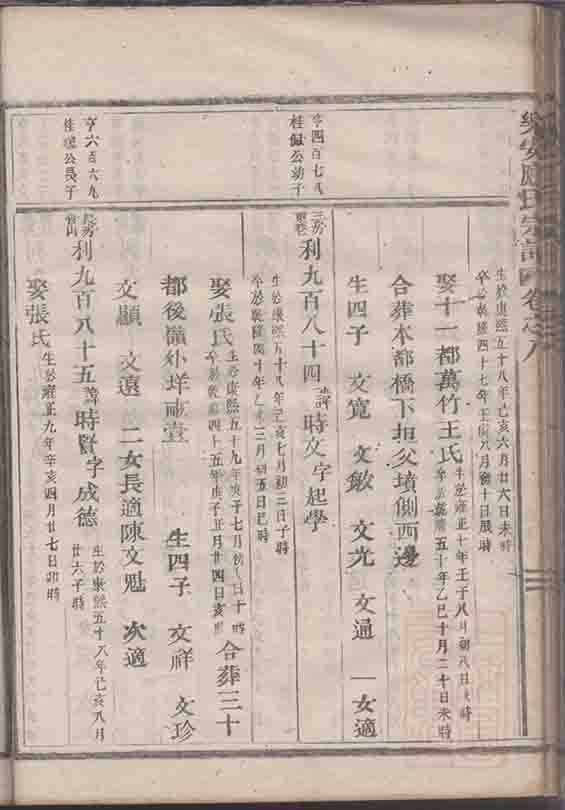 樂安應氏宗譜 卷之八
生於康熙五十八年己亥六月廿六日未時
卒於乾隆四十七年壬寅八月初十日辰時
娶十一都萬竹王氏
生於雍正十年壬子八月初八日未時
卒於乾隆五十年乙巳十月二十日未時
合葬本都橋下坦父墳側西邊
生四子 文寬 文敏 文光 文通 一女適
亨四百七八
桂佩公幼子
三房
利九百八十四 諱時文字起學
生於康熙五十八年己亥七月初三日子時
卒於乾隆四十年乙未三月初五日巳時
娶張氏
生於康熙五十九年庚子七月初八日午時
卒於乾隆四十五年庚子正月廿四日亥時
合葬三十
都後嶺外垟 壹
生四子 文祥 文珍
文顯 文遠 二女長適陳文魁 次適
亨六百六九
桂 公長子
利九百八十五 諱時賢字成德
生於康熙五十八年己亥八月
廿六子時
娶張氏
生於雍正九年辛亥四月廿七日卯時